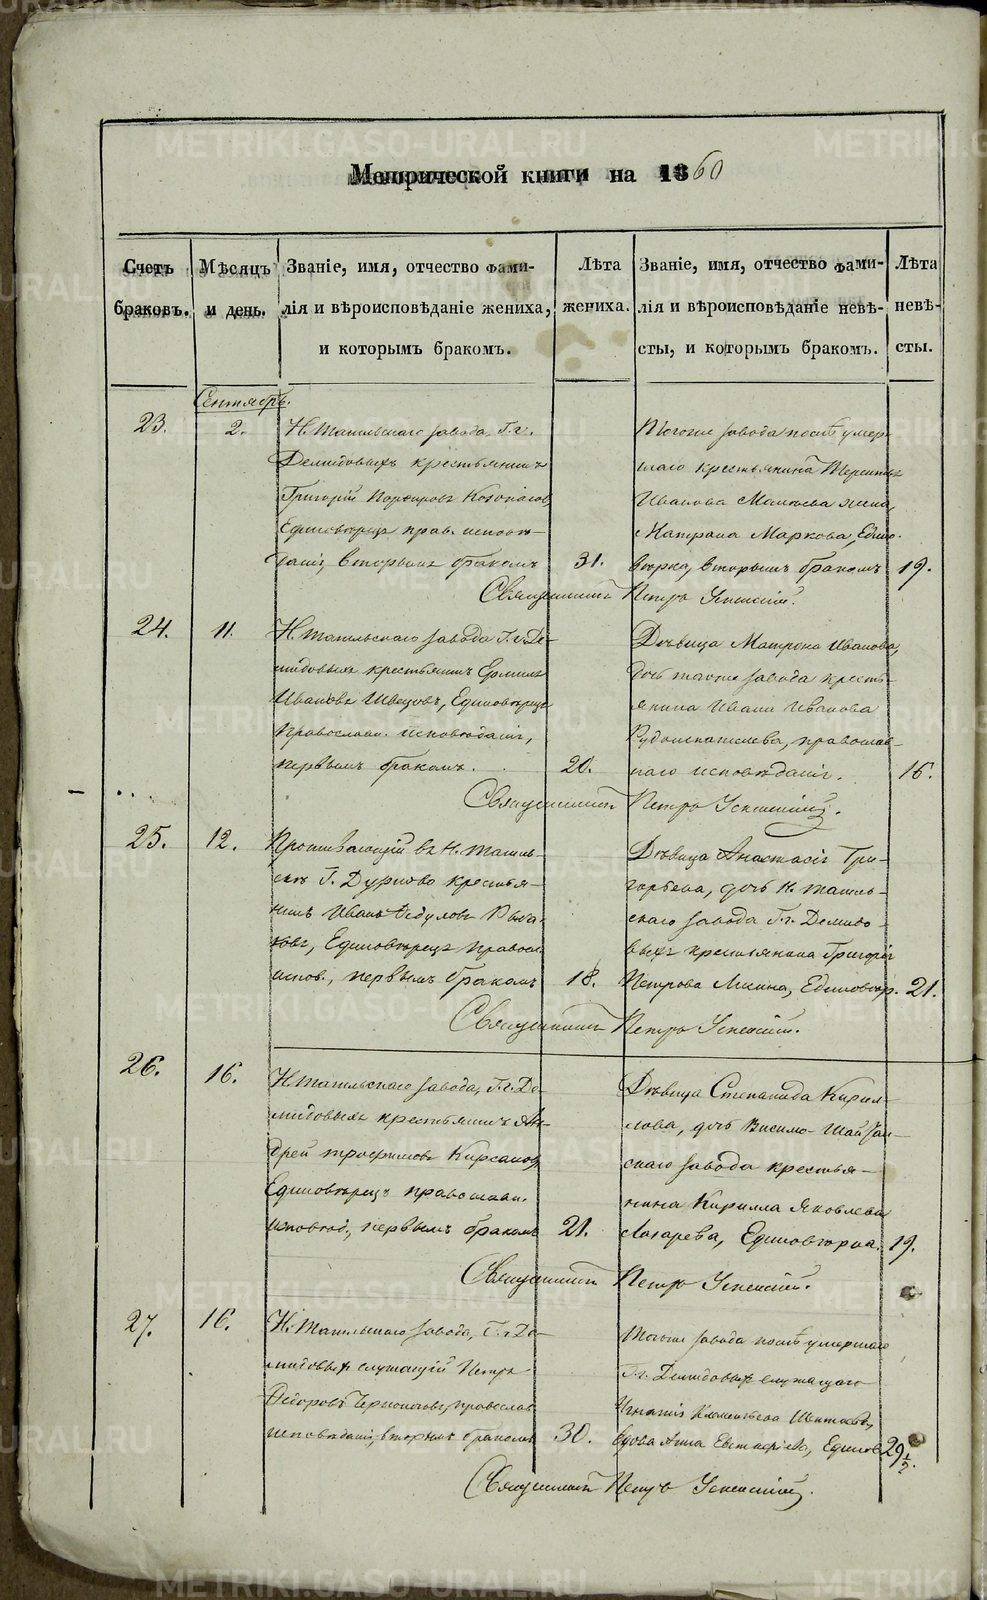 METRIKI.GASO-URAL.RU
Метрической книги на 1860
Счетъ браковъ.
Мѣсяцъ и день.
Званіе, имя, отчество фами-
лія и вѣроисповѣданіе жениха,
и которымъ бракомъ.
Лѣта
жениха.
Званіе, имя, отчество фами-
лія и вѣроисповѣданіе невѣ-
сты, и которымъ бракомъ.
Лѣта
невѣ-
сты.
Сентябрь.
23.
2.
Н. Тагильскаго завода, Г.г.
Демидовыхъ крестьянинъ
Григорій
Единовѣрецъ прав. исповѣ-
данія, вторымъ бракомъ
31.
Тогоже завода послѣ умер-
шаго крестьянина
Иванова жена,
Матрона Маркова, Едино-
вѣрка, вторымъ бракомъ
19.
Священникъ Петръ Успенскій.
24.
11.
Н. Тагильскаго завода Г.г. Де-
мидовыхъ крестьянинъ Ермилъ
Ивановъ Швецовъ, Единовѣрецъ
Православн. исповѣданія,
первымъ бракомъ.
20.
Дѣвица Матрона Иванова,
дочь тогоже завода кресть-
янина Ивана Иванова
Рудоискателева, православ-
наго исповѣданія.
16.
Священникъ Петръ Успенскій.
25.
12.
Проживающій въ Н. Тагиль-
скѣ Г. Дурново крестья-
нинъ Иванъ Ѳедуловъ
Единовѣрецъ правосл.
испов., первымъ бракомъ
18.
Дѣвица Анастасія Гри-
горьева, дочь Н. Тагиль-
скаго завода Г.г. Демидо-
выхъ крестьянина Григорія
Петрова Лисина, Единовѣр.
21.
Священникъ Петръ Успенскій.
26.
16.
Н. Тагильскаго завода, Г.г. Де-
мидовыхъ крестьянинъ Ан-
дрей Трофимовъ Кирсановъ
Единовѣрецъ православн.
исповѣд., первымъ бракомъ
21.
Дѣвица Степанида Кирил-
лова, дочь Висимо-Шайтан-
скаго завода крестья-
нина Кирилла Яковлева
Лазарева, Единовѣрка.
19.
Священникъ Петръ Успенскій.
27.
16.
Н. Тагильскаго завода, Г.г. Де-
мидовыхъ служащій Петръ
Ѳедоровъ православ.
исповѣданія, вторымъ бракомъ
30.
Тогоже завода послѣ умершаго
Г.г. Демидовыхъ служащаго
Игнатія Климентьева
вдова Анна Единов.
29 1/2.
Священникъ Петръ Успенскій.